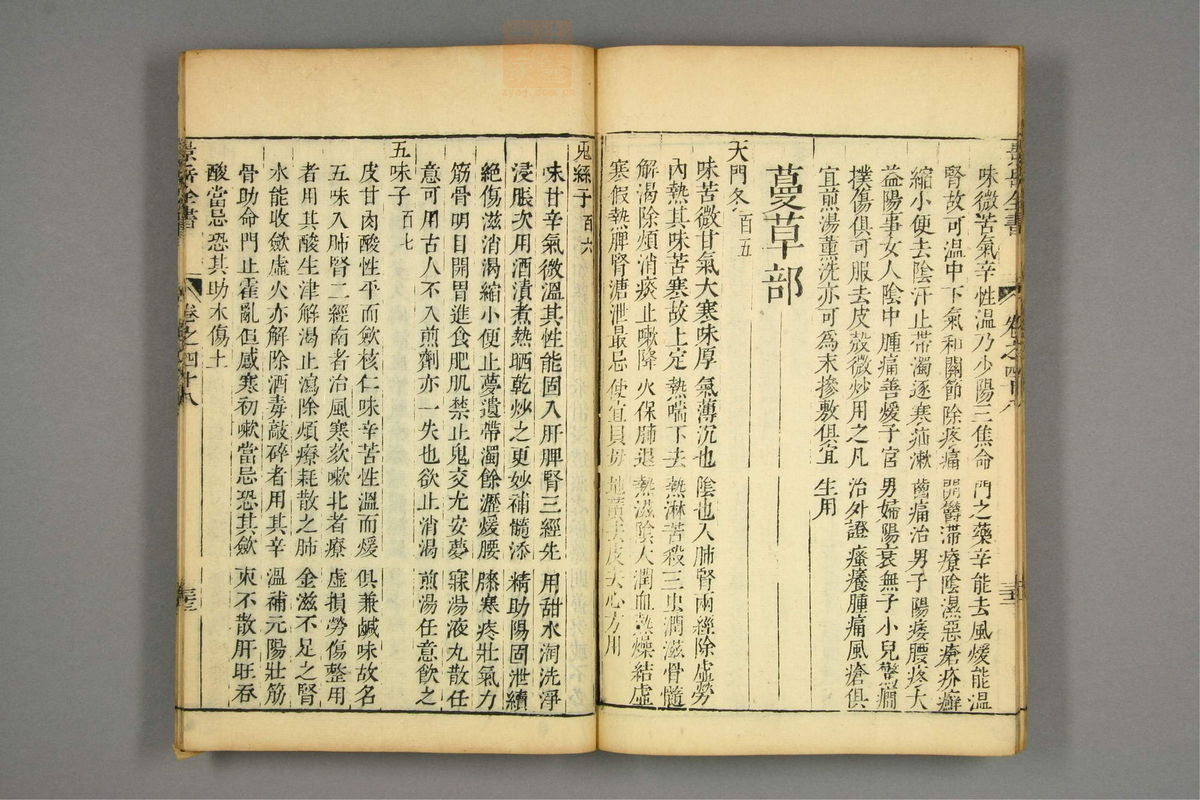 景岳全書
卷之四十八
味微苦氣辛性溫乃少陽三焦命門之藥辛能去風煖能溫
腎故可溫中下氣和關節除疼痛開鬱滯療陰濕惡瘡疥癬
縮小便去陰汗止帶濁逐寒疝漱齒痛治男子陽痿腰疼大
益陽事女人陰中腫痛善煖子宮男婦陽衰無子小兒驚癇
撲傷俱可服去皮殼微炒用之凡治外證瘙癢腫痛風瘡俱
宜煎湯薰洗亦可為末摻敷俱宜生用
蔓草部
天門冬 百五
味苦微甘氣大寒味厚氣薄沉也陰也入肺腎兩經除虛勞
內熱其味苦寒故上定熱喘下去熱淋苦殺三虫潤滋骨髓
解渴除煩消痰止嗽降火保肺退熱滋陰大潤血熱燥結虛
寒假熱脾腎溏泄最忌使宜貝母地黃去皮去心方用
兎絲子 百六
味甘辛氣微溫其性能固入肝脾腎三經先用甜水洵洗淨
浸脹次用酒漬煮熱晒乾炒之更妙補髓添精助陽固泄續
絕傷滋消渴縮小便止夢遺帶濁餘瀝煖腰膝寒疼壯氣力
筋骨明目開胃進食肥肌禁止鬼交尤安夢寐湯液丸散任
意可用古人不入煎劑亦一失也欲止消渴煎湯任意飲之
五味子 百七
皮甘肉酸性平而歛核仁味辛苦性溫而煖俱兼鹹味故名
五味入肺腎二經南者治風寒欬嗽北者療虛損勞傷整用
者用其酸生津解渴止瀉除煩療耗散之肺金滋不足之腎
水能收歛虛火亦解除酒毒敲碎者用其辛溫補元陽壯筋
骨助命門止霍亂但感寒初嗽當忌恐其歛束不散肝旺吞
酸當忌恐其助木傷土
景岳全書
卷之四十八